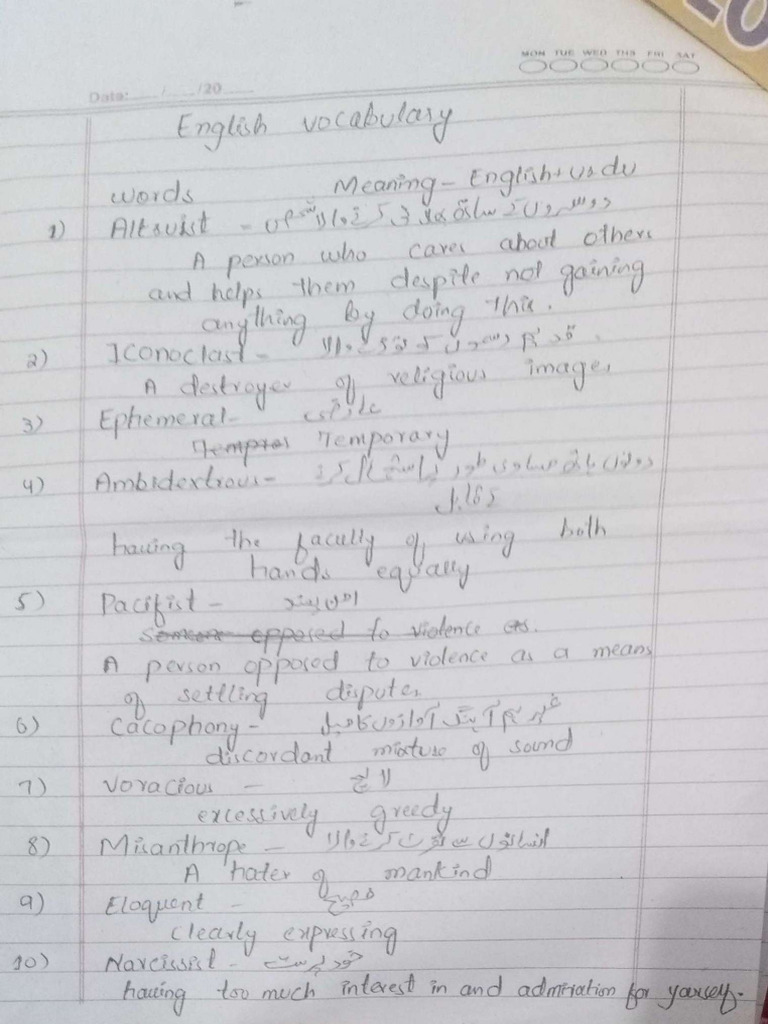 20
MON TUE WED THS FRI SAT
Date: / /20
English vocabulary
words Meaning - English + urdu
1) Altruist - دوسروں کے ساتھ بھلائی کرنے والا شخص
A person who cares about others
and helps them despite not gaining
anything by doing this.
2) Iconoclast - قدیم رسموں کو توڑنے والا
A destroyer of religious images
3) Ephemeral - عارضی
Temporary
4) Ambidextrous - دونوں ہاتھ مساوی طور پر استعمال کرنے
کے قابل
having the faculty of using both
hands equally
5) Pacifist - امن پسند
someone opposed to violence as.
A person opposed to violence as a means
of settling disputes
6) Cacophony - غیر ہم آہنگ آوازوں کا میل
discordant mixture of sound
7) Voracious - لالچی
excessively greedy
8) Misanthrope - انسانوں سے نفرت کرنے والا
A hater of mankind
9) Eloquent - فصیح
clearly expressing
10) Narcissist - خود پرست
having too much interest in and admiration for yourself.